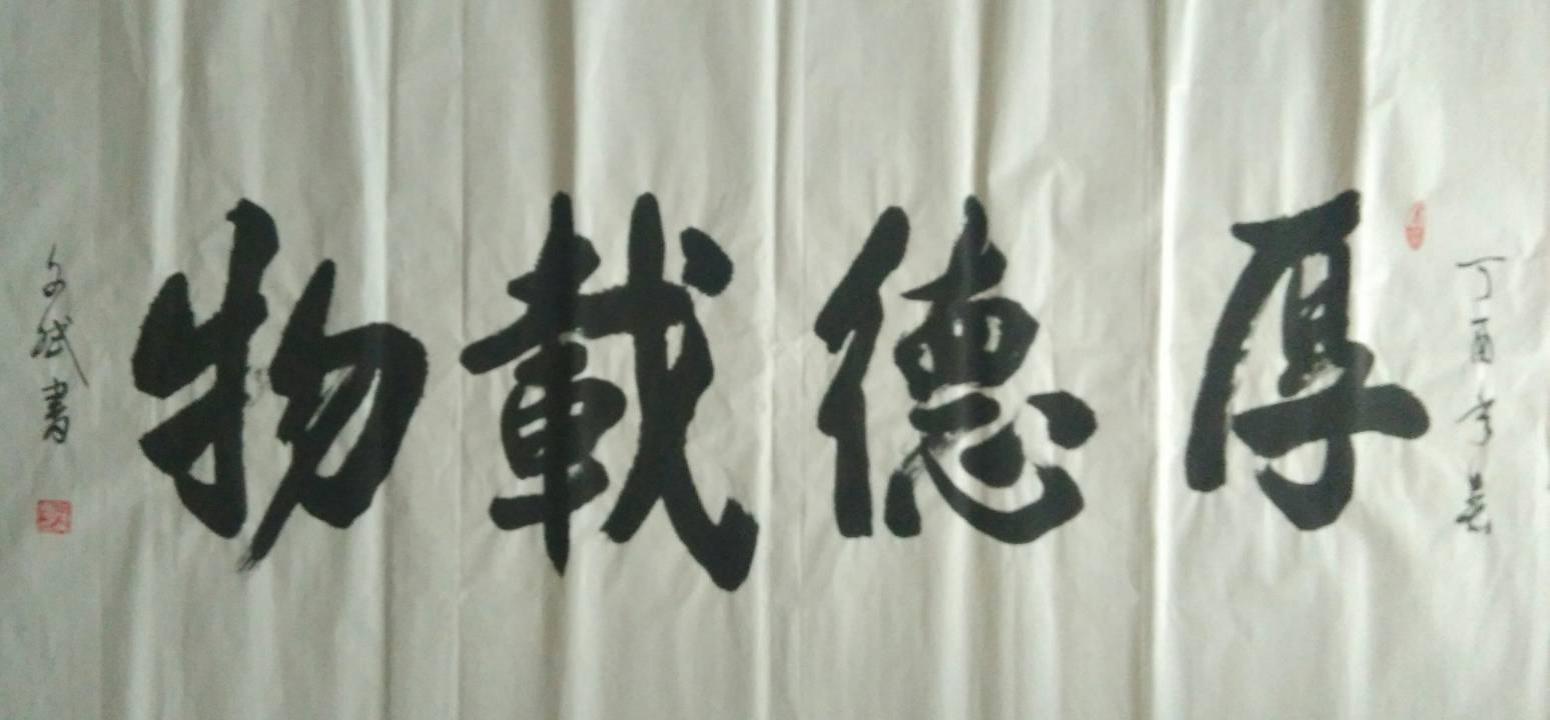 丁酉年春
厚德載物
文斌書